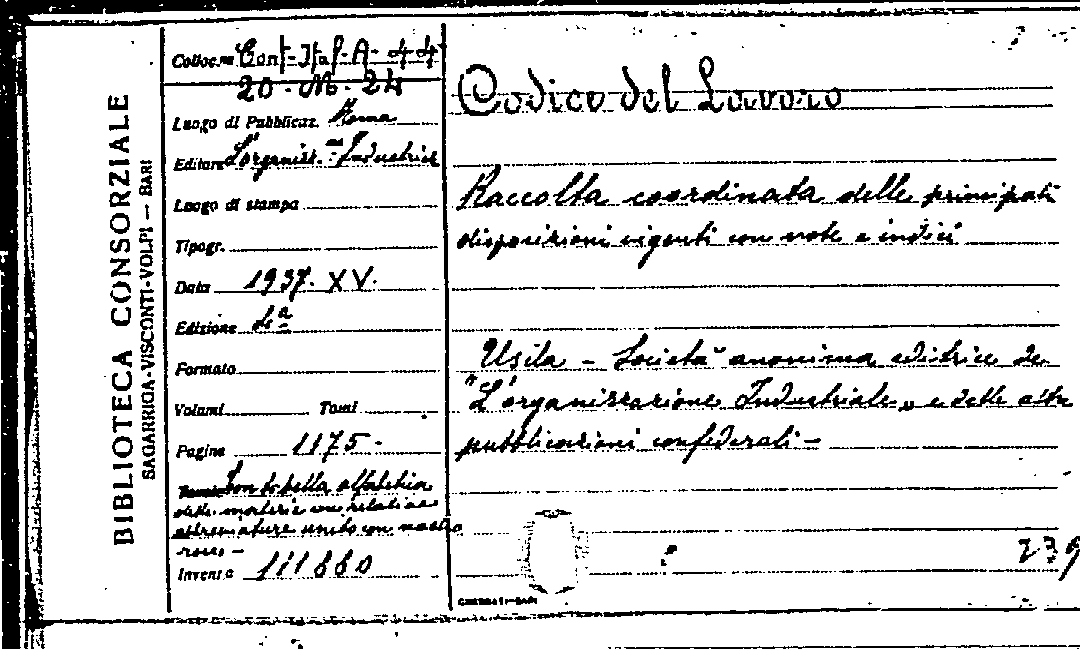 BIBLIOTECA CONSORZIALE
SAGARRIGA-VISCONTI-VOLPI — BARI
Colloc.ne Conf-Ital-A-44
20-M-24
Luogo di Pubblicaz. Roma
Editore L'organizz.ne Industriale
Luogo di stampa
Tipogr.
Data 1937-XV.
Edizione
Formato
Volumi Tomi
Pagine 1175-
con tabella alfabetica
delle materie con relative
unito con nastro
rosso -
Invent.o 111880
Codice del Lavoro
Raccolta coordinata delle principali
disposizioni vigenti con note e indici
Usila - Società anonima editrice de
"L'organizzazione Industriale" e delle altre
pubblicazioni confederali -
239